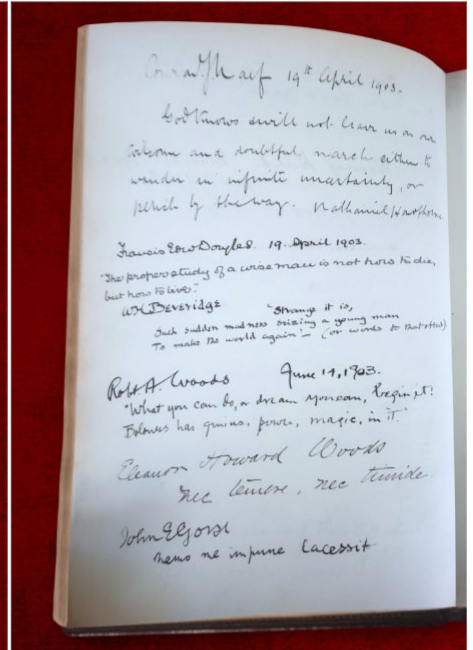 19th April 1903.
God knows & will not leave us on our
and doubtful march either to
wander in infinite uncertainty, or
perish by the way. Nathaniel Hawthorne
Francis Edw Douglas. 19. April 1903.
"The proper study of a wise man is not how to die,
but how to live."
WH Beveridge "Strange it is,
Such sudden madness seizing a young man
To make the world again"— (or words to that effect)
Robt A. Woods June 14, 1903.
"What you can do, or dream you can, begin it:
Boldness has genius, power, magic, in it."
Eleanor Howard Woods
Nec temere, nec timide.
John E Gorst
Nemo me impune lacessit